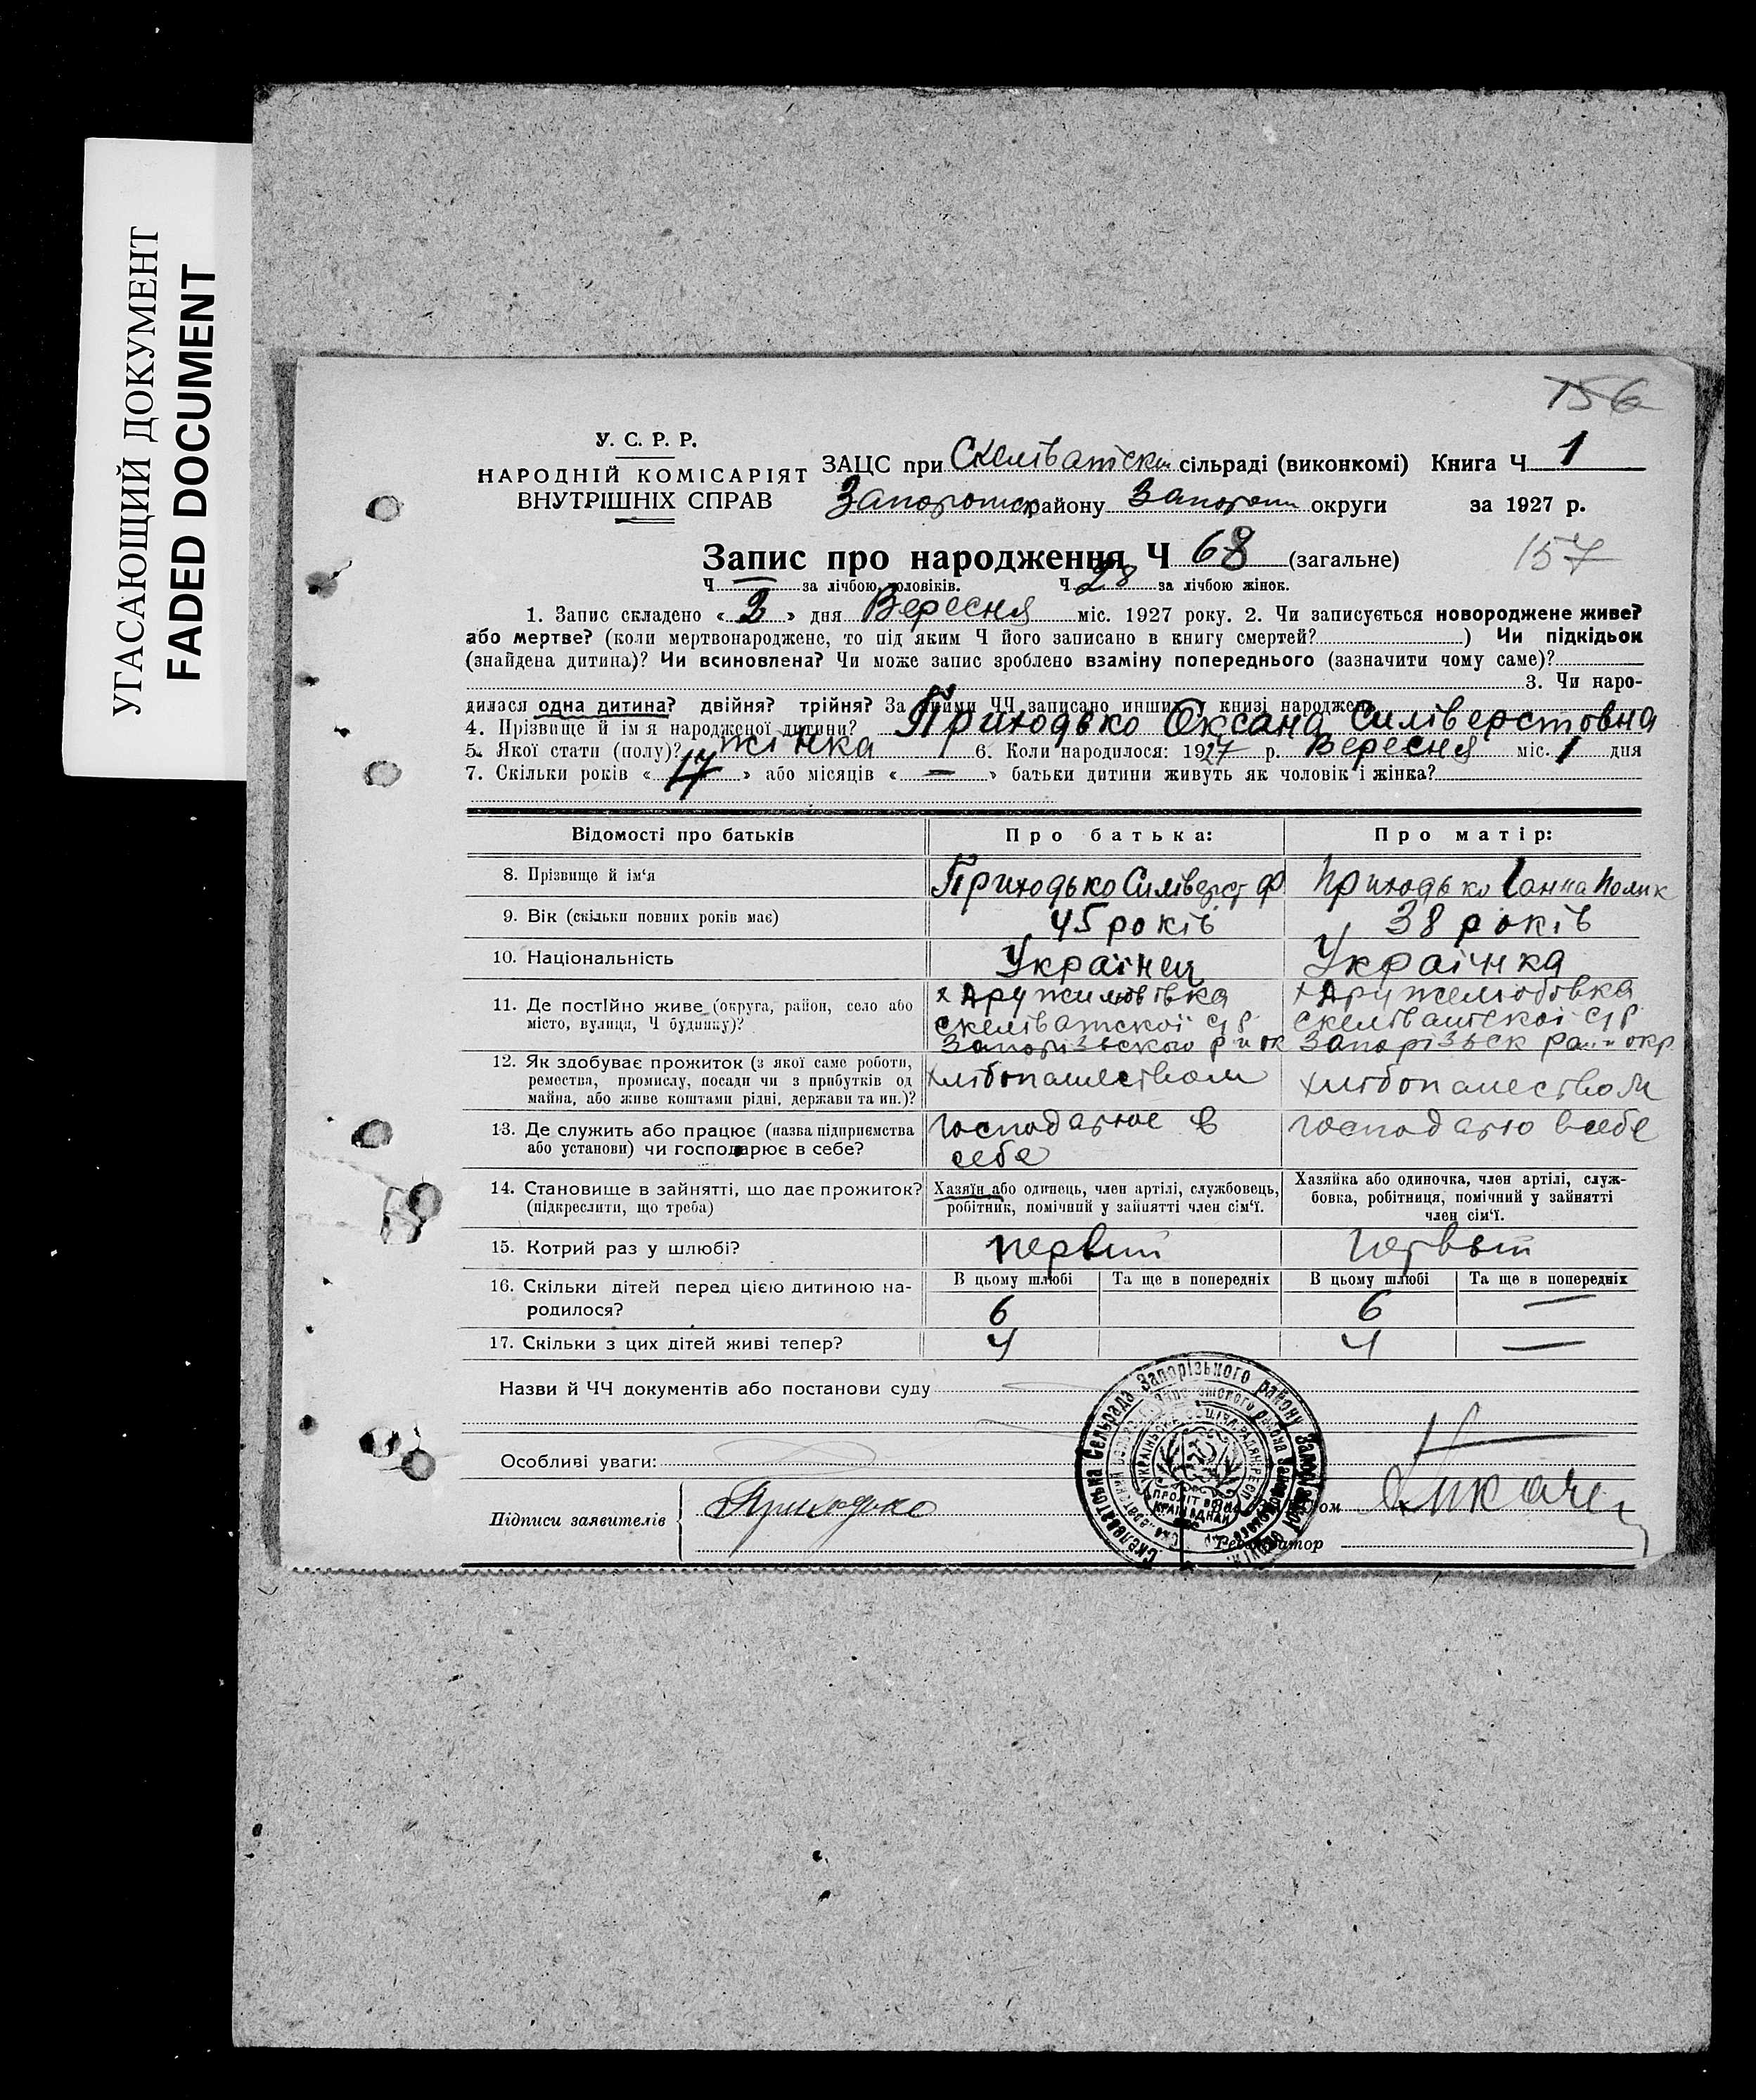 УГАСАЮЩИЙ ДОКУМЕНТ
FADED DOCUMENT
156
У. С. Р. Р.
НАРОДНІЙ КОМІСАРІЯТ
ВНУТРІШНІХ СПРАВ
ЗАЦС при Скеліватскій сільраді (виконкомі) Книга Ч 1
району округи за 1927 р.
Запис про народження Ч 68 (загальне)
157
Ч — за лічбою чоловіків. Ч 28 за лічбою жінок.
1. Запис складено « 2 » дня Вересня міс. 1927 року. 2. Чи записується новороджене живе?
або мертве? (коли мертвонароджене, то під яким Ч його записано в книгу смертей? ) Чи підкідьок
(знайдена дитина)? Чи всиновлена? Чи може запис зроблено взаміну попереднього (зазначити чому саме)?
3. Чи наро-
дилася одна дитина? двійня? трійня? За якими ЧЧ записано инших у книзі народжень
4. Прізвище й ім'я народженої дитини? Приходько Оксана Силіверстовна
5. Якої стати (полу)? жінка 6. Коли народилося: 1927 р. Вересня міс. 1 дня
7. Скільки років « 17 » або місяців « — » батьки дитини живуть як чоловік і жінка?
Відомості про батьків Про батька: Про матір:
8. Прізвище й ім'я Приходько Силіверст Ф Приходько Ганна Полик
9. Вік (скільки повних років має) 45 років 38 років
10. Національність Українец Українка
11. Де постійно живе (округа, район, село або х Дружилювівка х Дружелюбовка
місто, вулиця, Ч будинку)? Скеліватскої с/р Скеліватскої с/р
Запорізьского р и ок Запорізьск рай и окр
12. Як здобуває прожиток (з якої саме роботи,
ремества, промислу, посади чи з прибутків од хлібопашеством хлібопашеством
майна, або живе коштами рідні, держави та ин.)?
13. Де служить або працює (назва підприємства господарює в господарю в себе
або установи) чи господарює в себе? себе
14. Становище в зайнятті, що дає прожиток? Хазяїн або одинець, член артілі, службовець, Хазяйка або одиночка, член артілі, служ-
(підкреслити, що треба) робітник, помічний у зайнятті член сім'ї. бовка, робітниця, помічний у зайнятті
член сім'ї.
15. Котрий раз у шлюбі? первий первый
16. Скільки дітей перед цією дитиною на- В цьому шлюбі Та ще в попередніх В цьому шлюбі Та ще в попередніх
родилося? 6 6 —
17. Скільки з цих дітей живі тепер? 4 4 —
Назви й ЧЧ документів або постанови суду
Особливі уваги:
Підписи заявителів Приходько
Скеловатська Сельрада Запорізького району